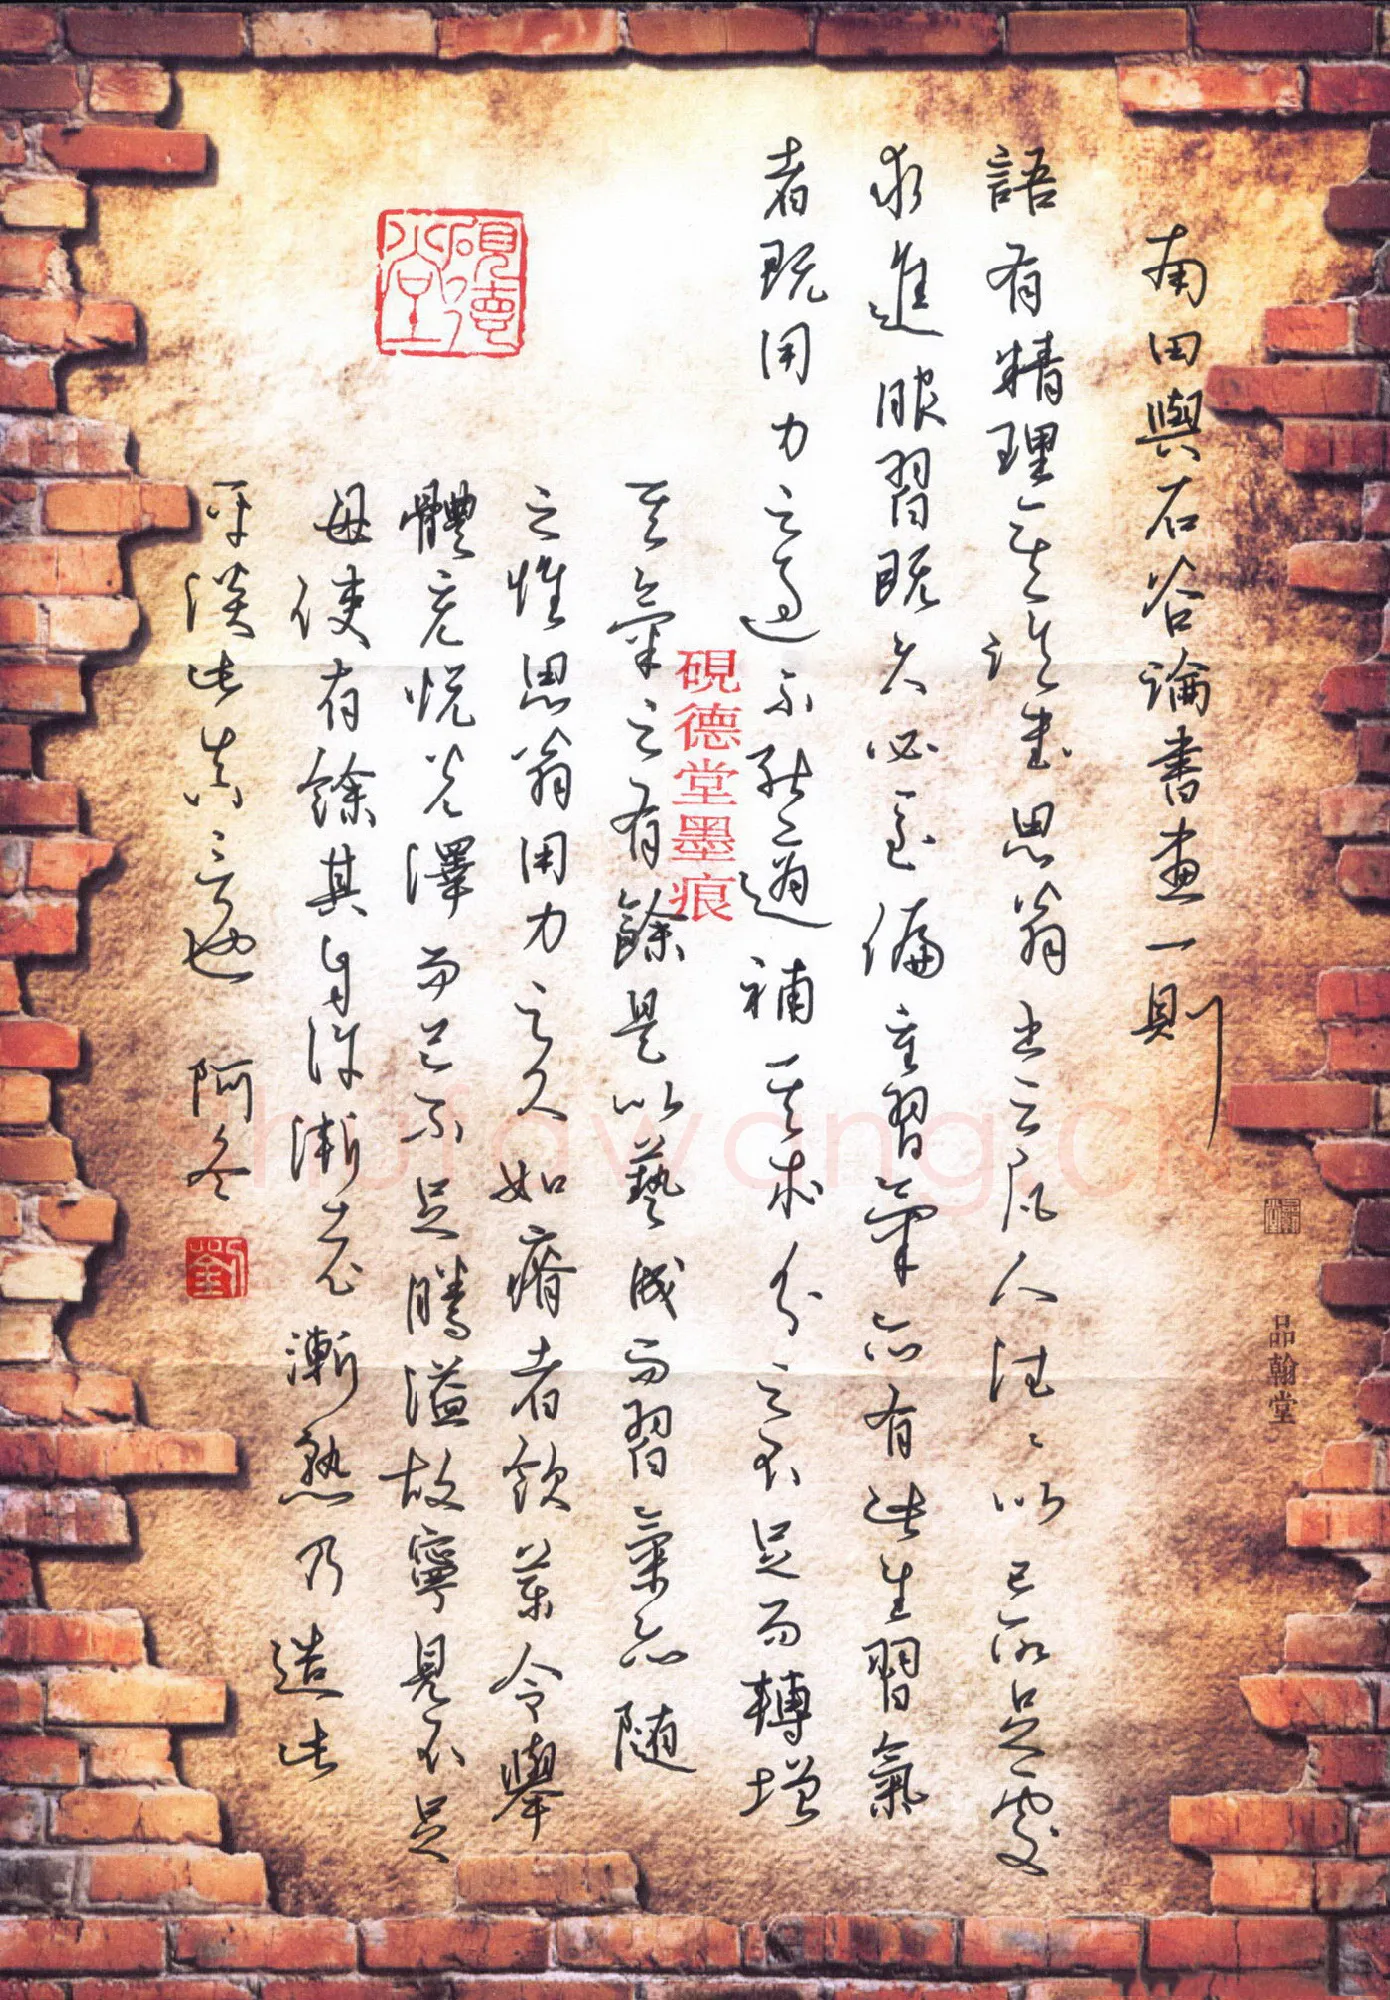 南田與石谷論書畫一則
語有精理其論書思翁書云凡人往往以己所足處
求進服習既久必至偏重習氣亦有此生習氣
者既用力之過不能適補其本分之不足而轉增
其氣之有餘是以藝成而習氣亦随
之惟思翁用力之久如瘠者飲藥令舉
體充悅光澤而已不足騰溢故寧見不足
毋使有餘其自許漸老漸熟乃造此
平淡此真言也 阿冬
劉
硯德堂
硯德堂墨痕
品翰堂
shufawang.cn